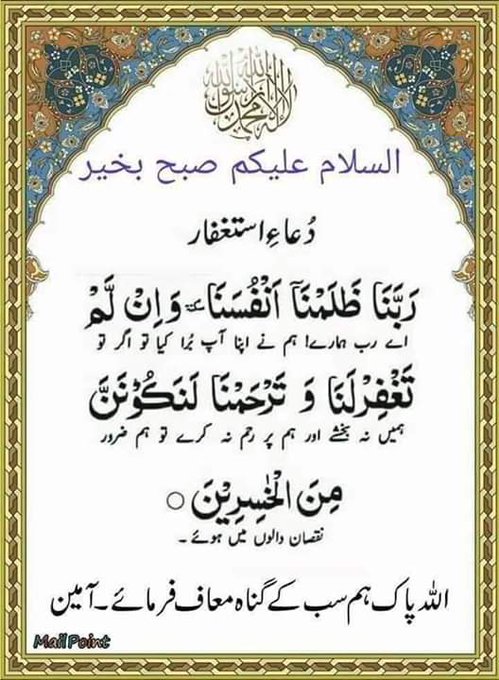 لا إله إلا الله محمد رسول الله
السلام علیکم صبح بخیر
دُعاءِ استغفار
رَبَّنَا ظَلَمْنَآ اَنْفُسَنَا ٚ وَاِنْ لَّمْ
اے رب ہمارے! ہم نے اپنا آپ بُرا کیا تو اگر تو
تَغْفِرْلَنَا وَ تَرْحَمْنَا لَنَكُوْنَنَّ
ہمیں نہ بخشے اور ہم پر رحم نہ کرے تو ہم ضرور
مِنَ الْخٰسِرِيْنَ ○
نقصان والوں میں ہوئے ۔
اللہ پاک ہم سب کے گناہ معاف فرمائے۔ آمین
Mail Point